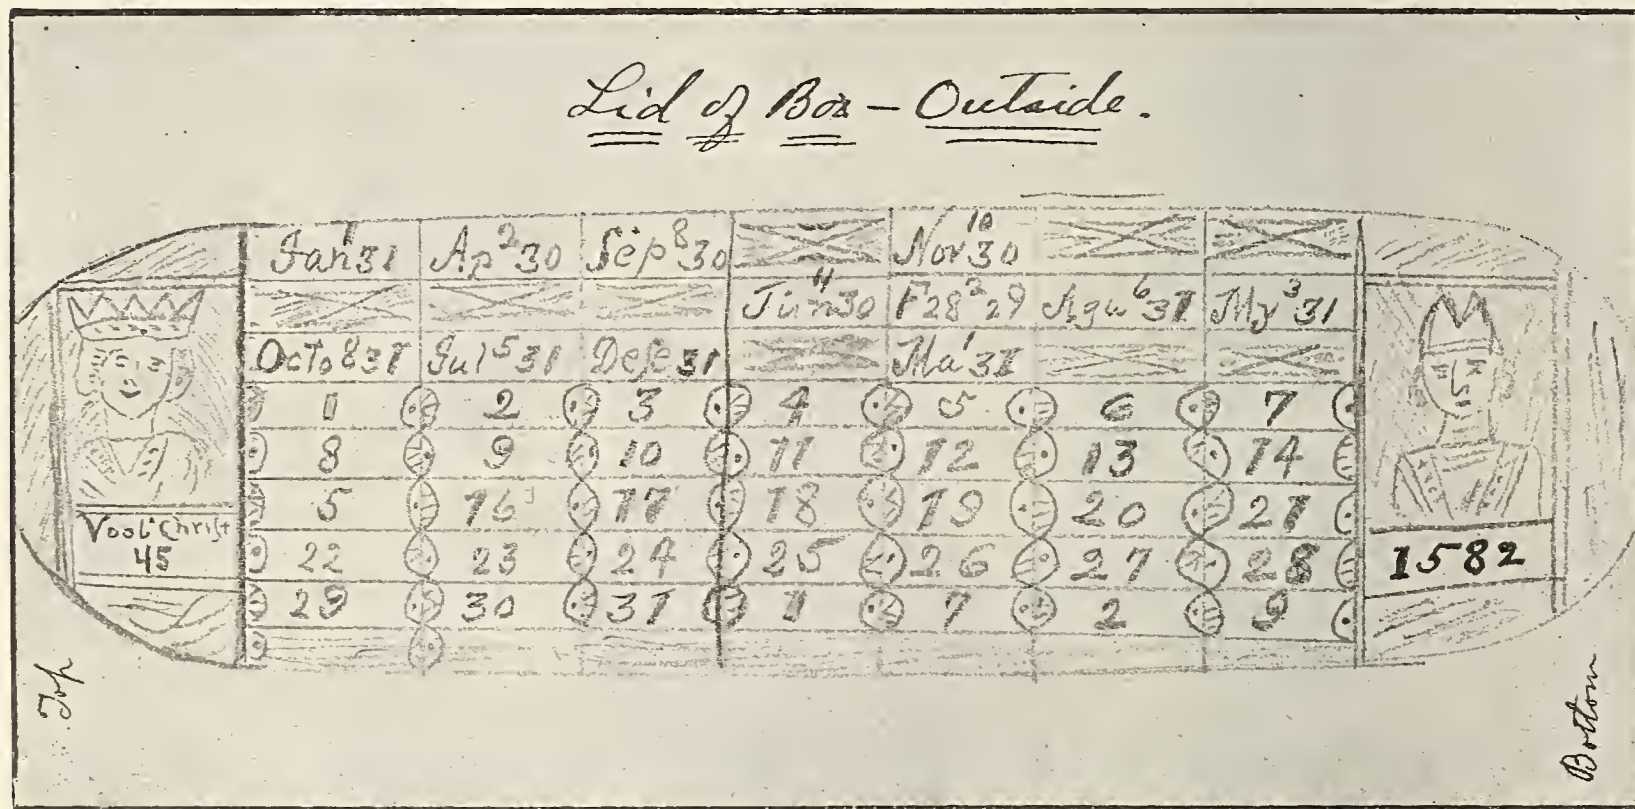 Lid of Box – Outside.
Jan 1 31 Ap 2 30 Sep 8 30 Nor 10 30
Jun 11 30 F 28 2 29 Agu 6 31 My 3 31
Octo 8 31 Jul 5 31 Defe 31 Ma 1 31
1 2 3 4 5 6 7
8 9 10 11 12 13 14
5 16 17 18 19 20 21
22 23 24 25 26 27 28
29 30 31 1 7 2 9
Voor Christ
45
1582
Top
Bottom